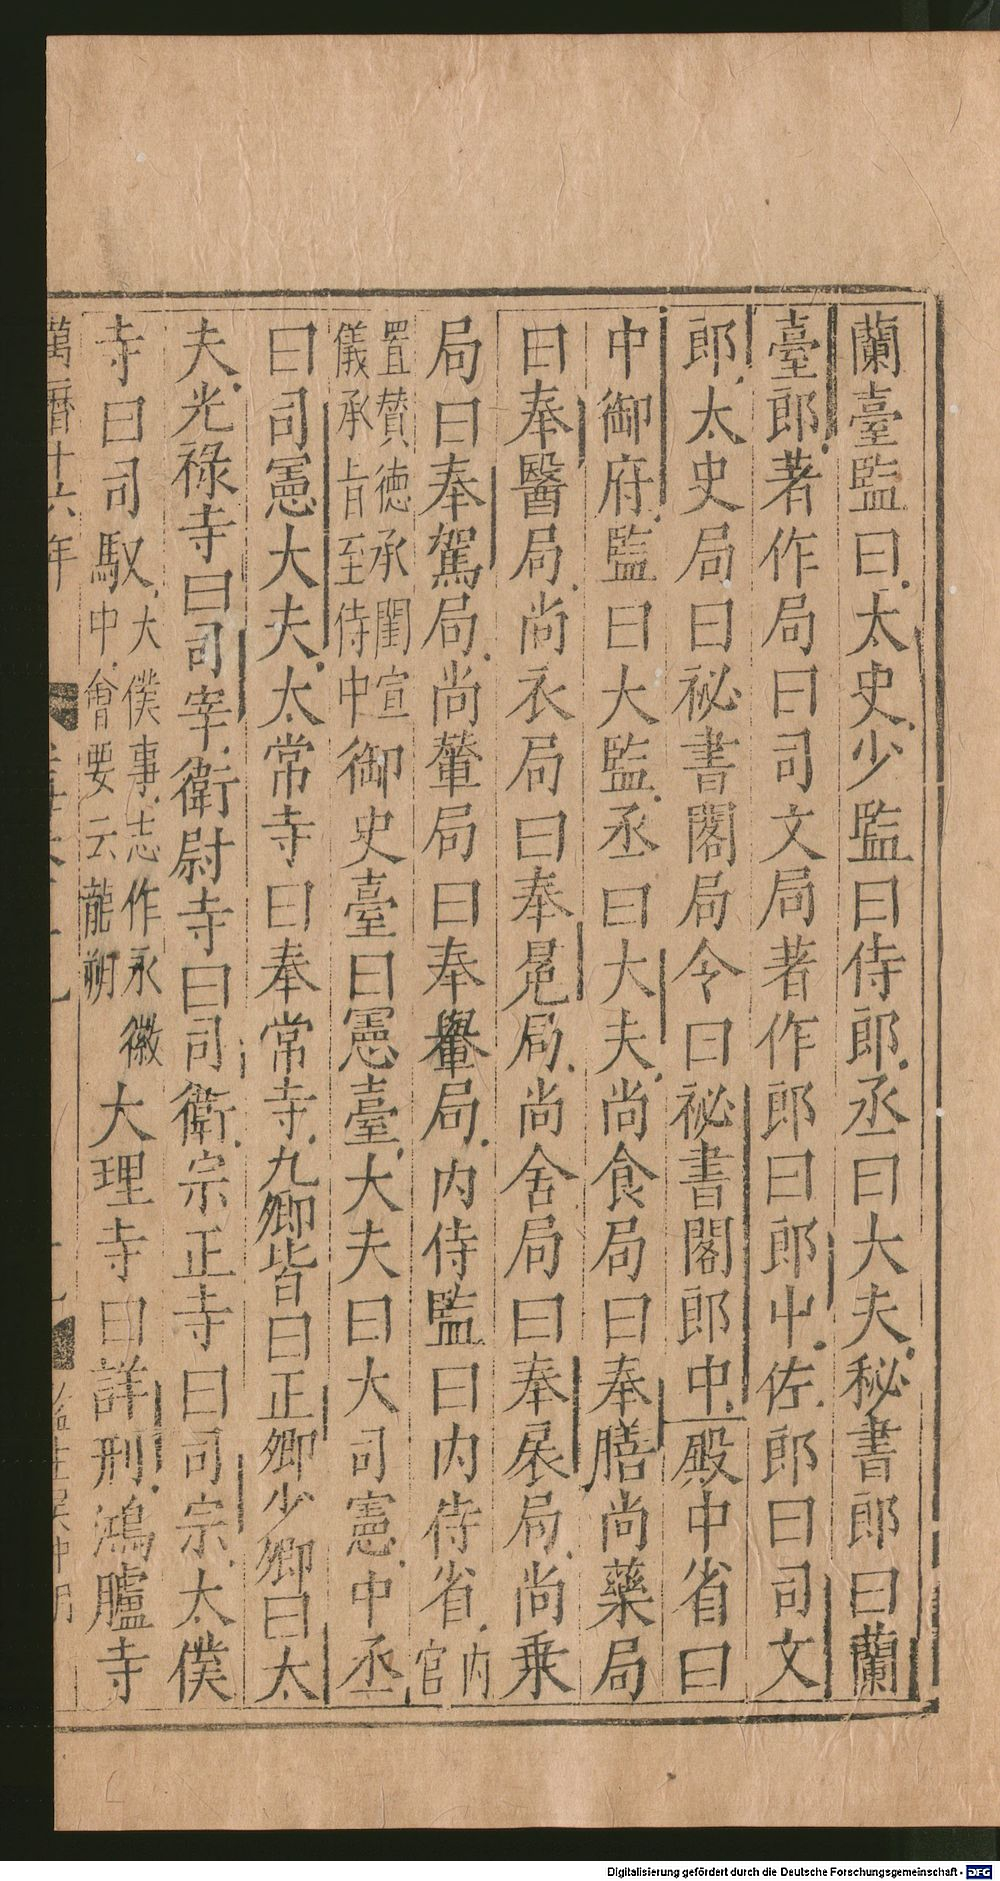 蘭臺監曰太史少監曰侍郎丞曰大夫秘書郎曰蘭
臺郎著作局曰司文局著作郎曰郎中佐郎曰司文
郎太史局曰祕書閣局令曰祕書閣郎中殿中省曰
中御府監曰大監丞曰大夫尚食局曰奉膳尚藥局
曰奉醫局尚衣局曰奉冕局尚舍局曰奉扆局尚乗
局曰奉駕局尚輦局曰奉轝局内侍監曰内侍省内官
置賛德承閨宣
儀承旨至侍中
御史臺曰憲臺大夫曰大司憲中丞
曰司憲大夫太常寺曰奉常寺九卿皆曰正卿少卿曰太
夫光祿寺曰司宰衛尉寺曰司衛宗正寺曰司宗太僕
寺曰司馭
大僕事志作永徽
中會要云龍朔
大理寺曰詳刑鴻臚寺
萬曆十六年
Digitalisierung gefördert durch die Deutsche Forschungsgemeinschaft - DFG